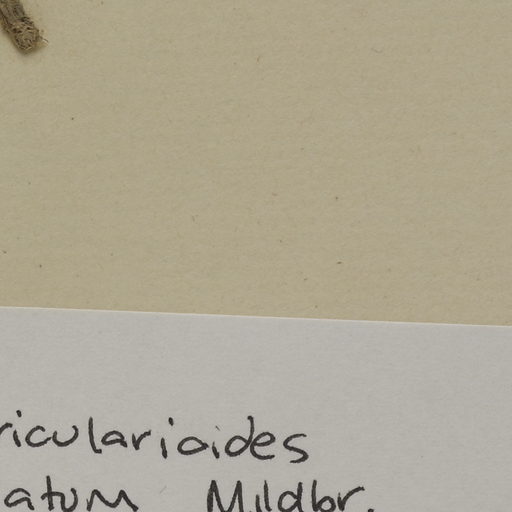 ricularioides
atum Mildbr.